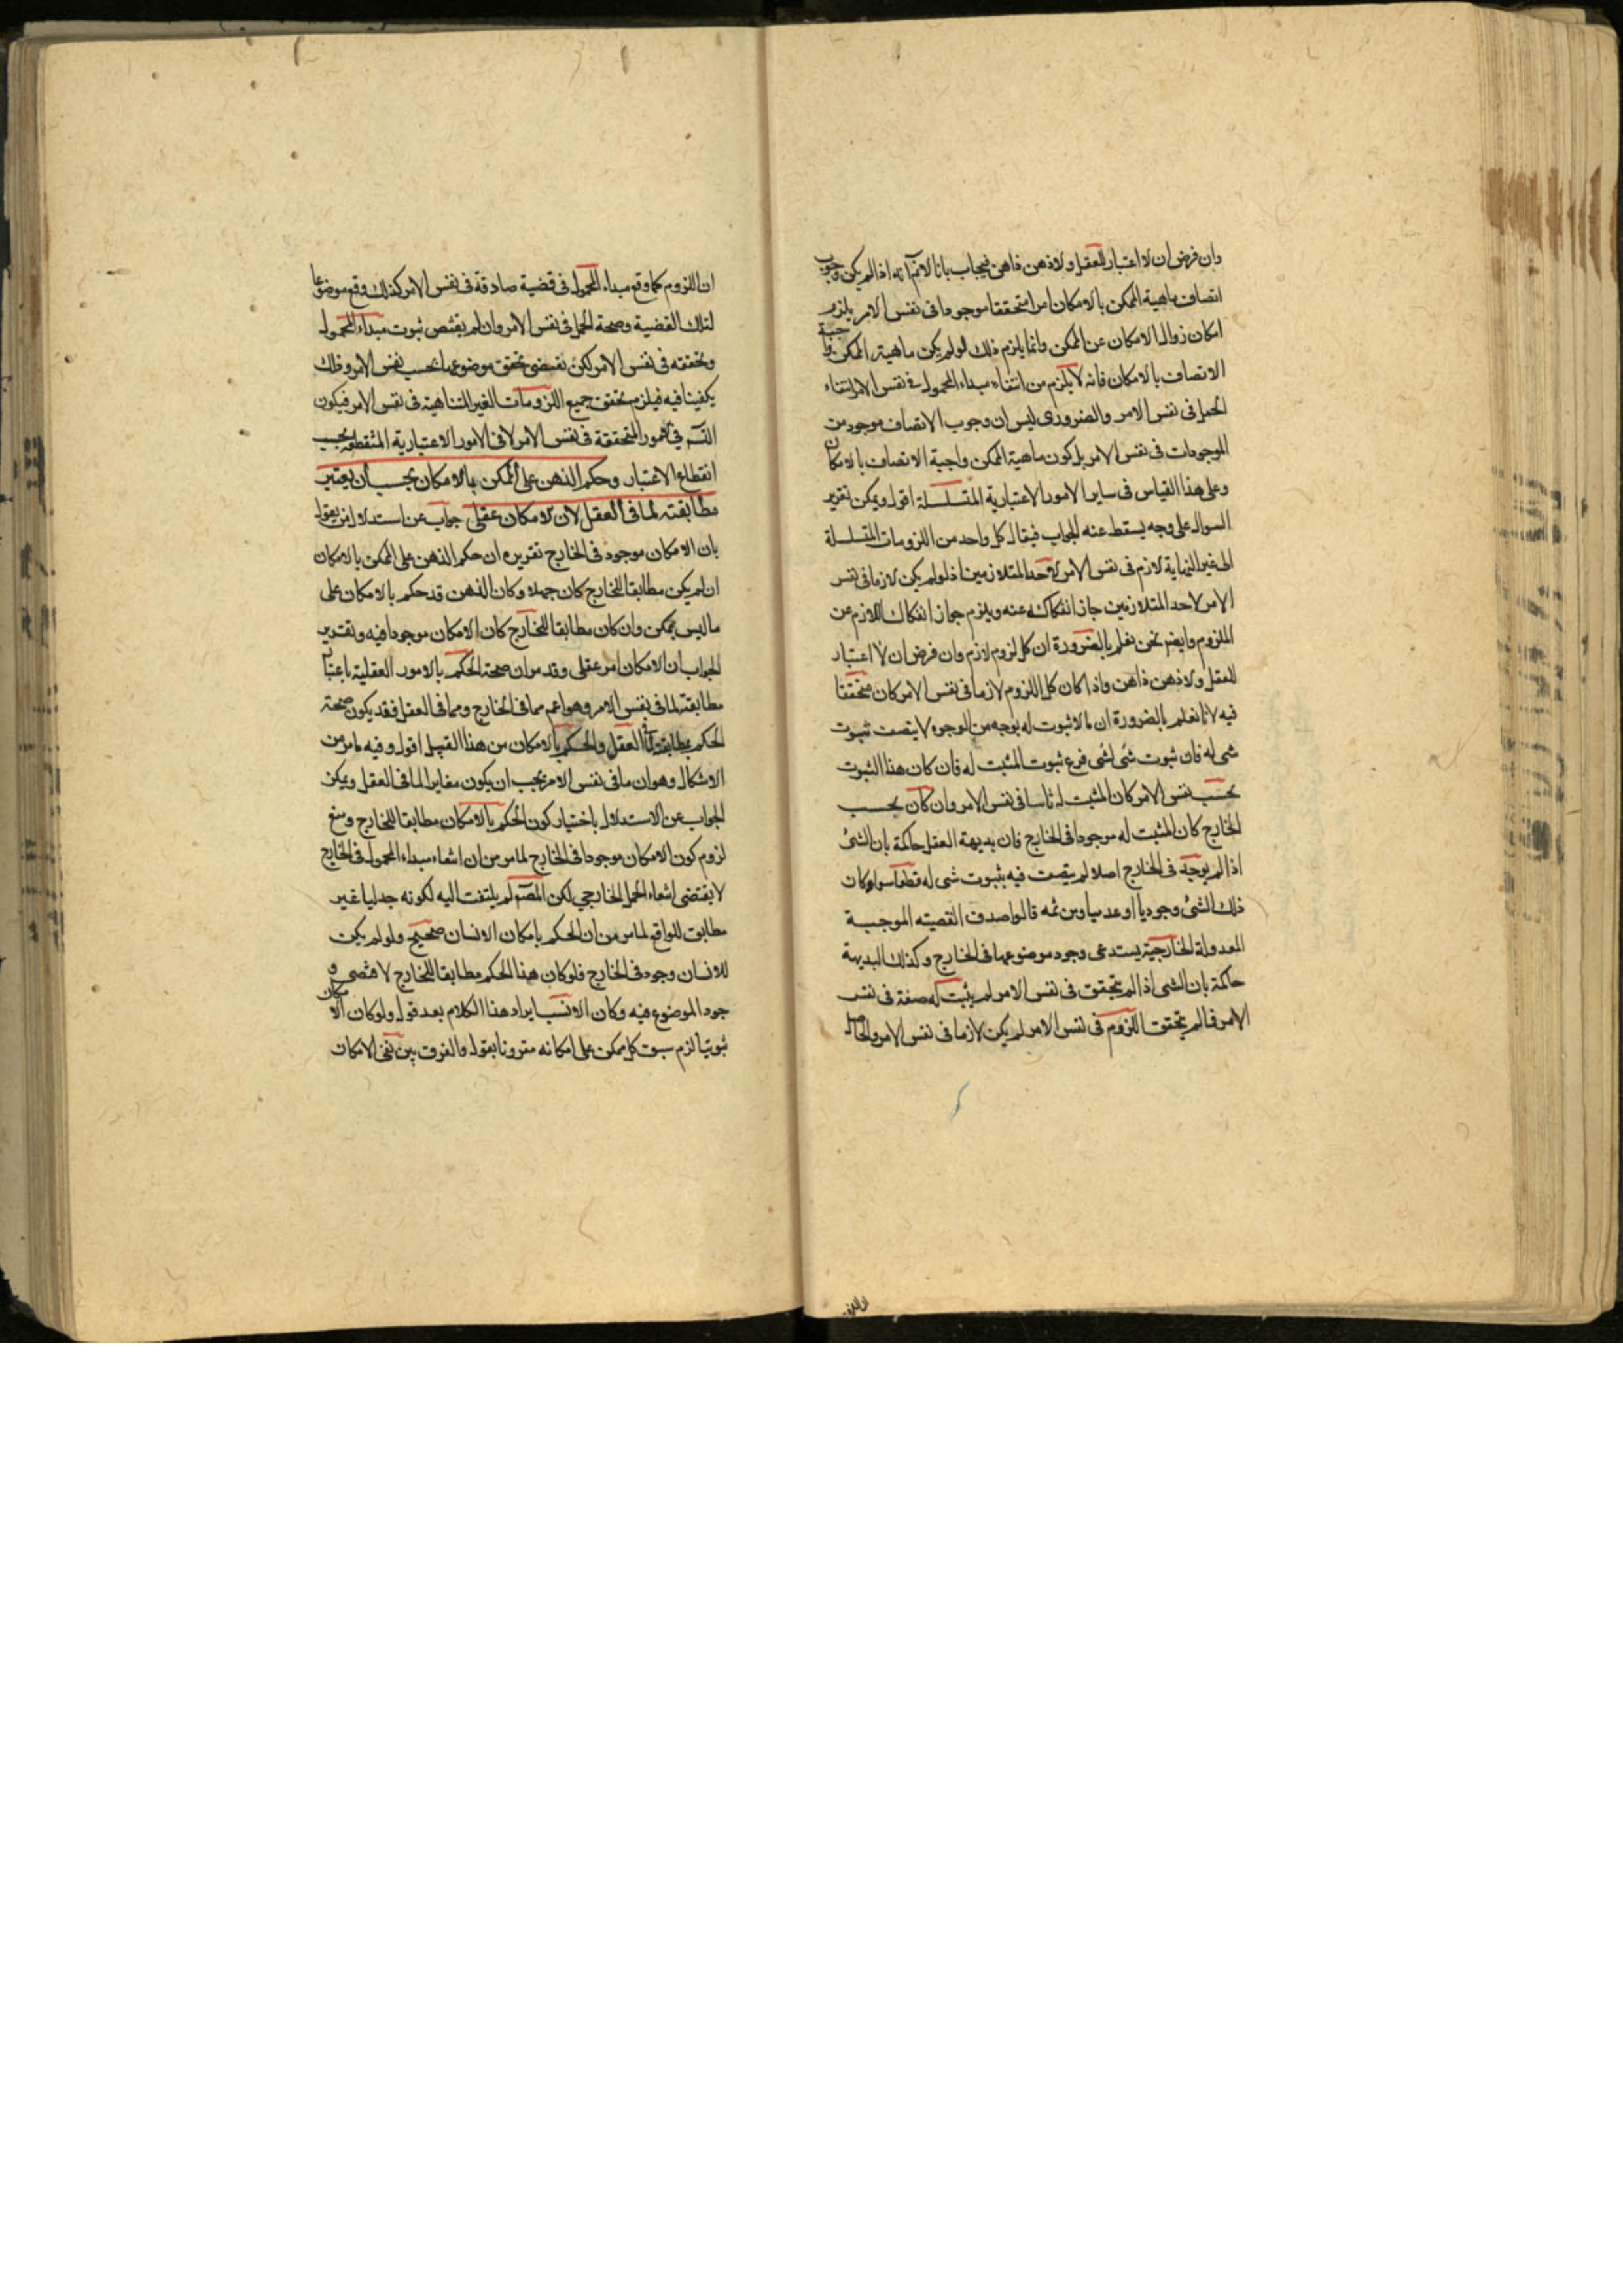 وان فرض ان لا اعتبار للعقل ولا ذهن ذاهن فيجاب بانا لانم انه اذا لم يكن وجوب
اتصاف ماهية الممكن بالامكان امرا متحققا موجودا فى نفس الامر يلزم
امكان زوال الامكان عن الممكن وانما يلزم ذلك لو لم يكن ماهية الممكن واجبة
الاتصاف بالامكان فانه لا يلزم من انتفاء مبداء المحمول فى نفس الامر انتفاء
الحمل فى نفس الامر والضرورى ليس ان وجوب الاتصاف موجود من
الموجودات فى نفس الامر بل كون ماهية الممكن واجبة الاتصاف بالامكان
وعلى هذا القياس فى ساير الامور الاعتبارية المتسلسلة اقول ويمكن تقرير
السوال على وجه يسقط عنه الجواب فيقال كل واحد من اللزومات المتسلسلة
الى غير النهاية لازم فى نفس الامر لاحد المتلازمين اذ لو لم يكن لازما فى نفس
الامر لاحد المتلازمين جاز انفكاكه عنه ويلزم جواز انفكاك اللازم عن
الملزوم وايضم نحن نعلم بالضرورة ان كل لزوم لازم وان فرض ان لا اعتبار
للعقل ولا ذهن ذاهن واذا كان كل اللزوم لازما فى نفس الامر كان متحققا
فيه لانا نعلم بالضرورة ان ما لا ثبوت له بوجه من الوجوه لا يتصف بثبوت
شى له فان ثبوت شى لشى فرع ثبوت المثبت له فان كان هذا الثبوت
بحسب نفس الامر كان المثبت له ثابتا فى نفس الامر وان كان بحسب
الخارج كان المثبت له موجودا فى الخارج فان بديهة العقل حاكمة بان الشئ
اذا لم يوجد فى الخارج اصلا لم يتصف فيه بثبوت شى له قطعا سواء كان
ذلك الشئ وجوديا او عدميا ومن ثمه قالوا صدق القضيته الموجبة
المعدولة الخارجية يستدعى وجود موضوعها فى الخارج وكذلك البديهة
حاكمة بان الشى اذا لم يتحقق فى نفس الامر لم يثبت له صفة فى نفس
الامر فما لم يتحقق اللزوم فى نفس الامر لم يكن لازما فى نفس الامر والحاصل
ان اللزوم كما وقع مبداء المحمول فى قضية صادقة فى نفس الامر كذلك وقع موضوعا
لتلك القضية وصحة الحمل فى نفس الامر وان لم يقتض ثبوت مبداء المحمول
وتحققه فى نفس الامر لكن تقتضى تحقق موضوعها بحسب نفس الامر وذلك
يكفينا فيه فيلزم تحقق جميع اللزومات الغير المتناهية فى نفس الامر فيكون
التسم فى الامور المتحققة فى نفس الامر لا فى الامور الاعتبارية المنقطعة بحسب
انقطاع الاعتبار وحكم الذهن على الممكن بالامكان يجب ان يعتبر
مطابقته لما فى العقل لان الامكان عقلى جواب عن استدلال من يقول
بان الامكان موجود فى الخارج تقريره ان حكم الذهن على الممكن بالامكان
ان لم يكن مطابقا للخارج كان جهلا وكان الذهن قد حكم بالامكان على
ما ليس بممكن وان كان مطابقا للخارج كان الامكان موجودا فيه وتقدير
الجواب ان الامكان امر عقلى وقد مر ان صحة الحكم بالامور العقلية باعتبار
مطابقته لما فى نفس الامر وهو اعم مما فى الخارج ومما فى العقل فقد يكون صحة
الحكم بمطابقته لما فى العقل والحكم بالامكان من هذا القبيل اقول وفيه ما مر من
الاشكال وهو ان ما فى نفس الامر يجب ان يكون مغايرا لما فى العقل ويمكن
الجواب عن الاستدلال باختيار كون الحكم بالامكان مطابقا للخارج ومنع
لزوم كون الامكان موجودا فى الخارج لما مر من ان انتفاء مبداء المحمول فى الخارج
لا يقتضى انتفاء الحمل الخارجي لكن المصنم لم يلتفت اليه لكونه جدليا غير
مطابق للواقع لما مر من ان الحكم بامكان الانسان صحيح ولو لم يكن
للانسان وجود فى الخارج فلو كان هذا الحكم مطابقا للخارج لاقتضى و
جود الموضوع فيه وكان الانسب ايراد هذا الكلام بعد قوله ولو كان الامكان
ثبوتيا لزم سبق كل ممكن على امكانه مقرونا بقوله والفرق بين نفى الامكان